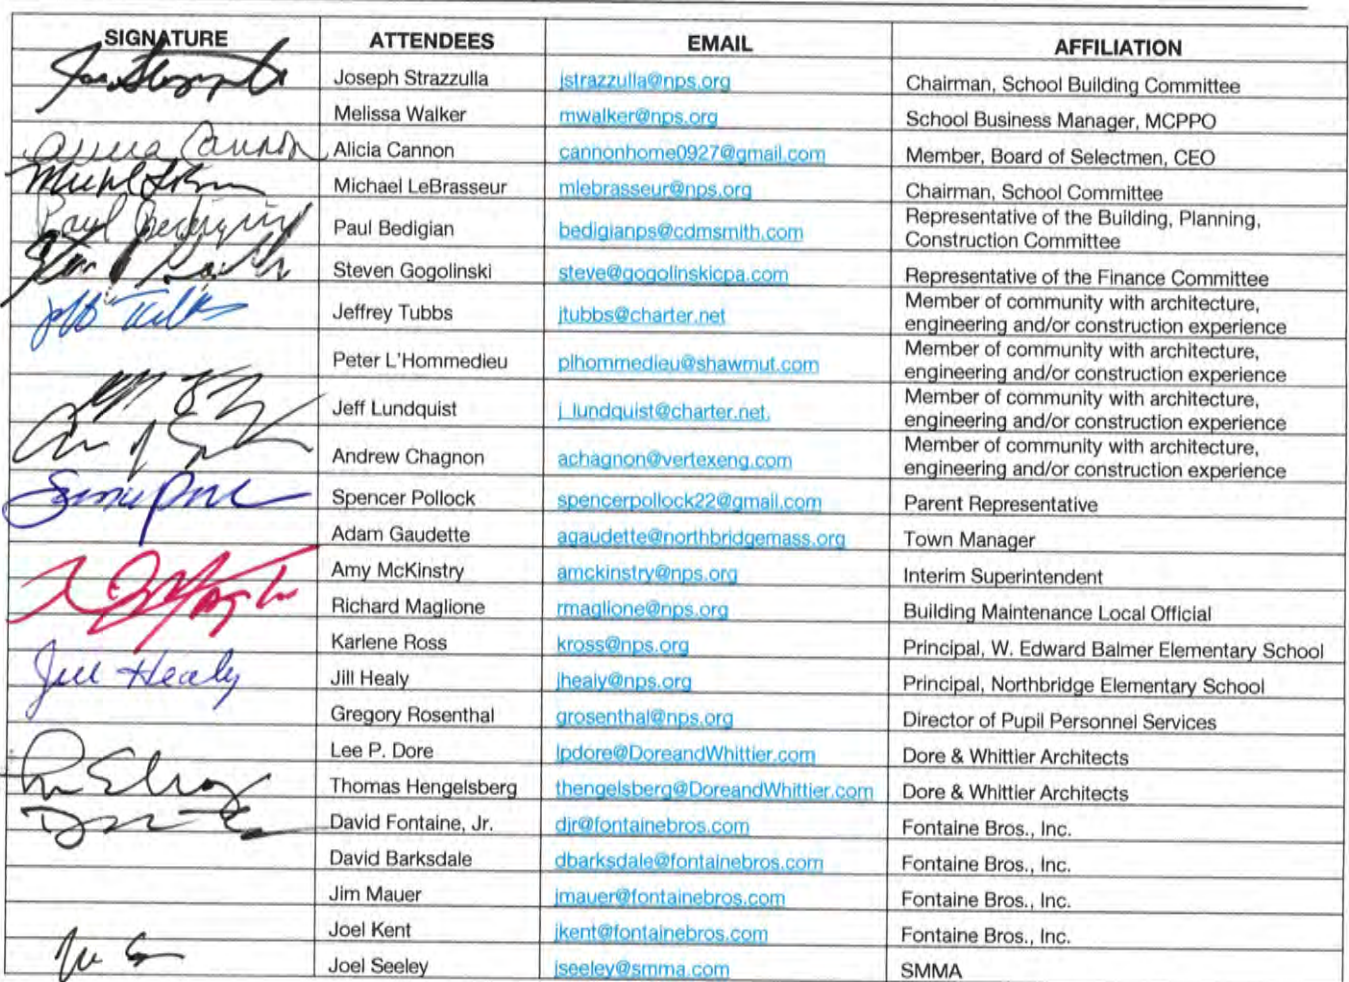 SIGNATURE ATTENDEES EMAIL AFFILIATION
Joseph Strazzulla jstrazzulla@nps.org Chairman, School Building Committee
Melissa Walker mwalker@nps.org School Business Manager, MCPPO
Alicia Cannon Alicia Cannon cannonhome0927@gmail.com Member, Board of Selectmen, CEO
Michael LeBrasseur mlebrasseur@nps.org Chairman, School Committee
Paul Bedigian Paul Bedigian bedigianps@cdmsmith.com Representative of the Building, Planning,
Construction Committee
Steven Gogolinski steve@gogolinskicpa.com Representative of the Finance Committee
Jeff Tubbs Jeffrey Tubbs jtubbs@charter.net Member of community with architecture,
engineering and/or construction experience
Peter L'Hommedieu plhommedieu@shawmut.com Member of community with architecture,
engineering and/or construction experience
Jeff Lundquist j_lundquist@charter.net. Member of community with architecture,
engineering and/or construction experience
Andrew Chagnon achagnon@vertexeng.com Member of community with architecture,
engineering and/or construction experience
Spencer Pollock spencerpollock22@gmail.com Parent Representative
Adam Gaudette agaudette@northbridgemass.org Town Manager
Amy McKinstry amckinstry@nps.org Interim Superintendent
Richard Maglione rmaglione@nps.org Building Maintenance Local Official
Karlene Ross kross@nps.org Principal, W. Edward Balmer Elementary School
Jill Healy Jill Healy jhealy@nps.org Principal, Northbridge Elementary School
Gregory Rosenthal grosenthal@nps.org Director of Pupil Personnel Services
Lee P. Dore lpdore@DoreandWhittier.com Dore & Whittier Architects
Thomas Hengelsberg thengelsberg@DoreandWhittier.com Dore & Whittier Architects
David Fontaine, Jr. djr@fontainebros.com Fontaine Bros., Inc.
David Barksdale dbarksdale@fontainebros.com Fontaine Bros., Inc.
Jim Mauer jmauer@fontainebros.com Fontaine Bros., Inc.
Joel Kent jkent@fontainebros.com Fontaine Bros., Inc.
Joel Seeley jseeley@smma.com SMMA